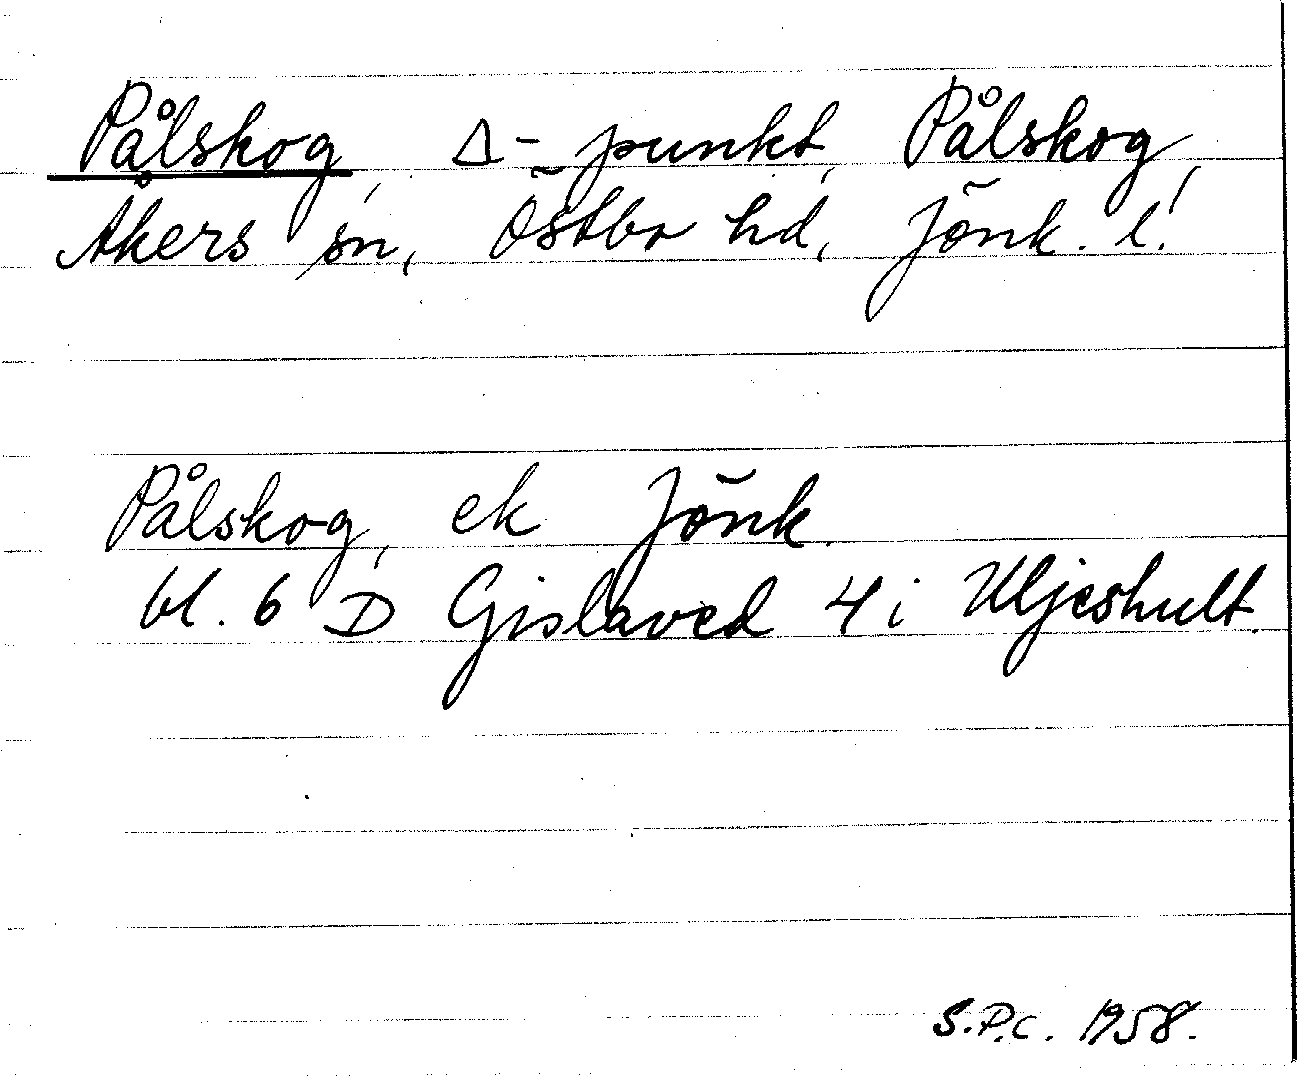 Pålskog, Δ-punkt, Pålskog,
Åkers sn, Östbo hd, Jönk. l.
Pålskog, ek Jönk.
bl. 6 D Gislaved 4 i Uljeshult.
S.P.C. 1958.